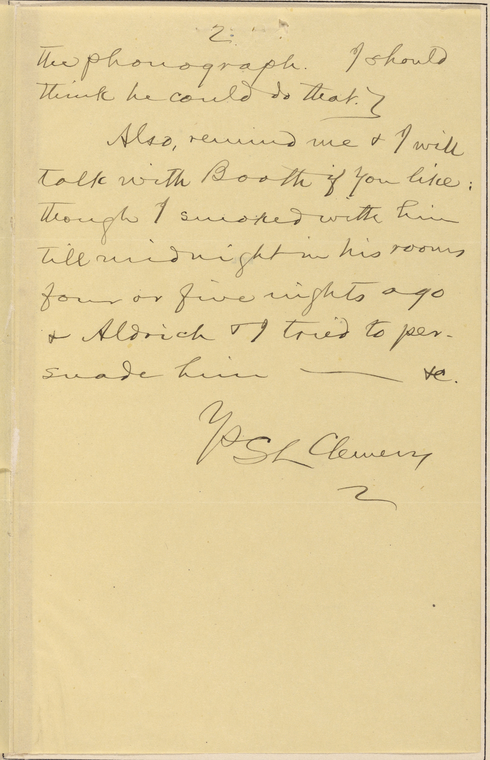 2.
the phonograph. I should
think he could do that.}
Also, remind me & I will
talk with Booth if you like;
though I smoked with him
till midnight in his rooms
four or five nights ago
& Aldrich & I tried to per-
suade him — &c.
Ys
SL Clemens